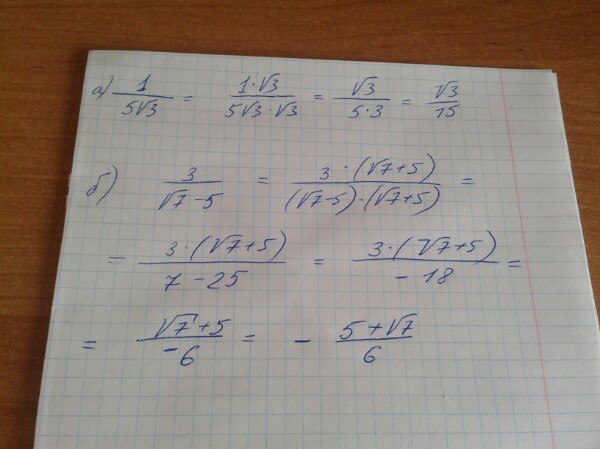 а) 1/(5√3) = (1·√3)/(5√3·√3) = √3/(5·3) = √3/15
б) 3/(√7-5) = (3·(√7+5))/((√7-5)·(√7+5)) =
= (3·(√7+5))/(7-25) = (3·(√7+5))/(-18) =
= (√7+5)/(-6) = - (5+√7)/6